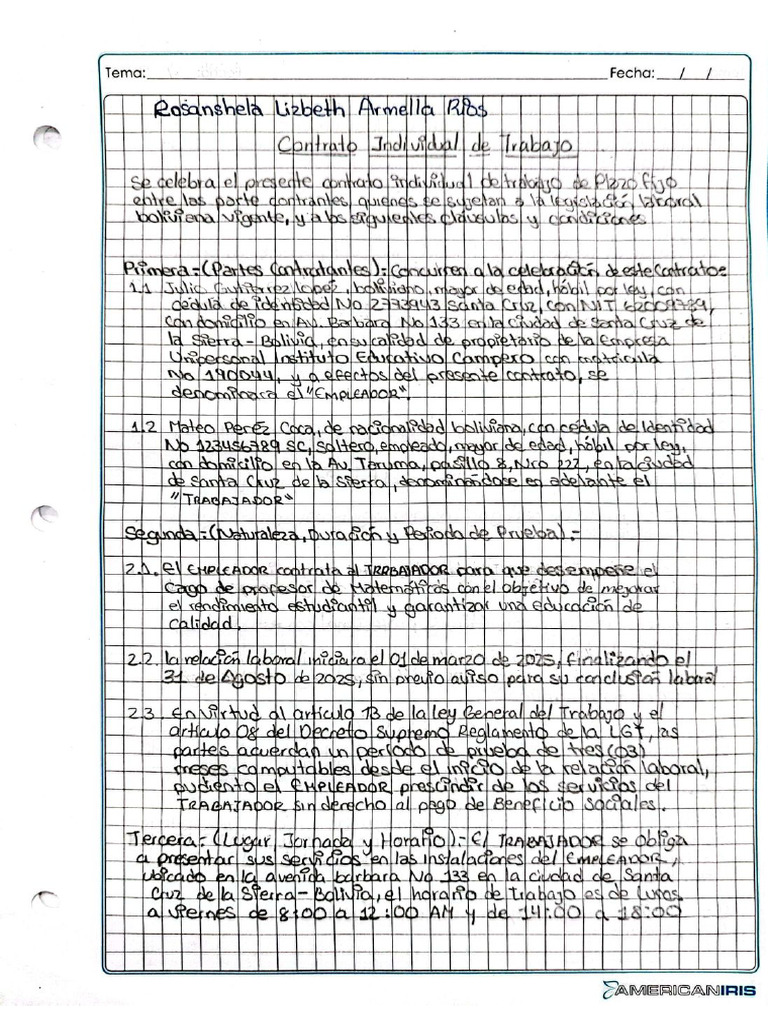 Tema: Fecha: / /
Rosanshela Lizbeth Armella Rios
Contrato Individual de Trabajo
Se celebra el presente contrato individual de trabajo de Plazo fijo
entre las parte contrantes, quienes se sujetan a la legislación laboral
boliviana vigente, y a los siguientes cláusulas y condiciones
Primera=(Partes Contratantes)=Concurren a la celebración de este Contrato=
1.1 Julio Gutiérrez Lopez, boliviano, mayor de edad, hábil por ley, con
cédula de identidad No 2773943 Santa Cruz, con NIT 62009789,
con domicilio en Av. Barbara No 133 en la ciudad de Santa Cruz de
la Sierra - Bolivia, en su calidad de propietario de la Empresa
Unipersonal Instituto Educativo Campero con matricula
No 190044, y a efectos del presente contrato, se
denominara el "EMPLEADOR".
1.2 Mateo Pérez Coca, de nacionalidad boliviana, con cédula de Identidad
No 123456789 SC, soltero, empleado, mayor de edad, hábil por ley,
con domicilio en la Av. Taruma, pasillo 8, Nro 222, en la ciudad
de Santa Cruz de la Sierra, denominándose en adelante el
"TRABAJADOR"
Segunda=(Naturaleza, Duración y Periodo de Prueba)=
2.1. El EMPLEADOR contrata al TRABAJADOR para que desempeñe el
Cago de profesor de Matemáticas con el objetivo de mejorar
el rendimiento estudiantil y garantizar una educación de
calidad.
2.2. la relación laboral iniciara el 01 de marzo de 2025, finalizando el
31 de Agosto de 2025, sin previo aviso para su conclusión laboral
2.3. En virtud al artículo 13 de la ley General del Trabajo y el
artículo 08 del Decreto Supremo Reglamento de la LGT, las
partes acuerdan un período de prueba de tres (03)
meses computables desde el inicio de la relación laboral,
pudiento el EMPLEADOR prescindir de los servicios del
TRABAJADOR sin derecho al pago de Beneficio Sociales.
Tercera=(Lugar, Jornada y Horario)=El TRABAJADOR se obliga
a presentar sus servicios en las instalaciones del EMPLEADOR,
ubicado en la avenida barbara No 133 en la ciudad de Santa
Cruz de la Sierra-Bolivia, el horario de Trabajo es de Lunes
a viernes de 8:00 a 12:00 AM y de 14:00 a 18:00
AMERICANIRIS